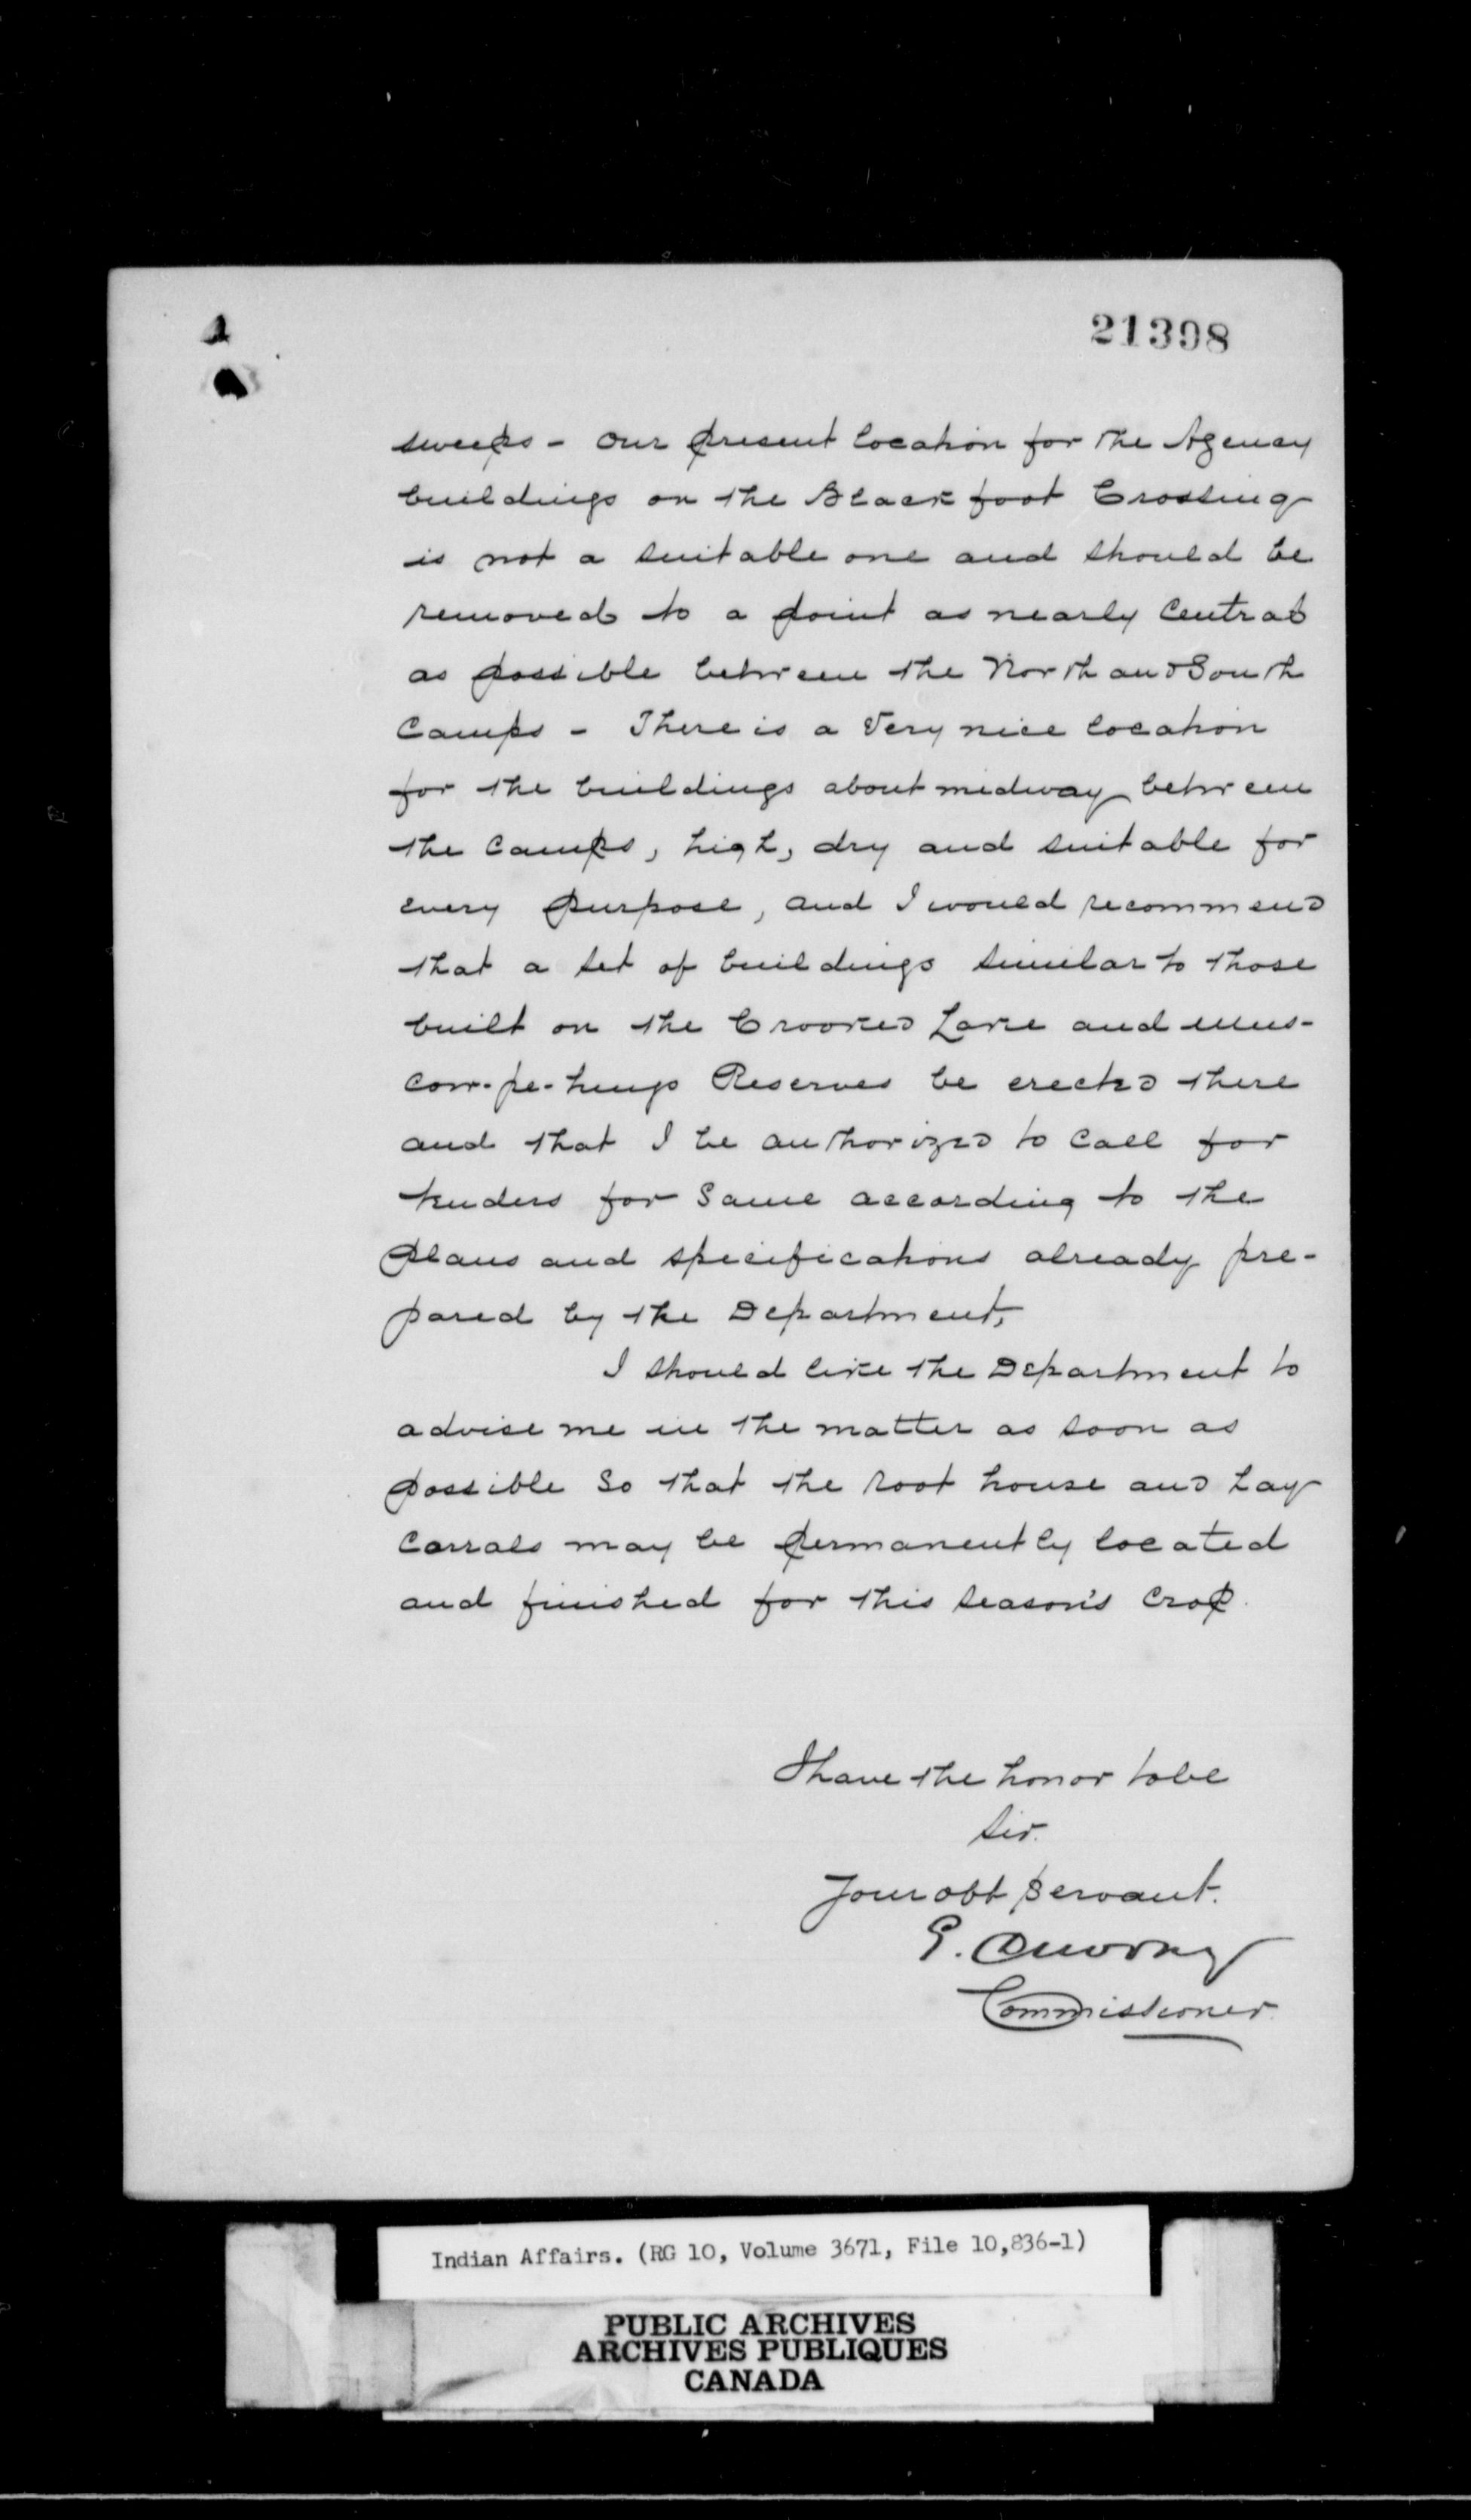 21398
sweeps - Our present location for the Agency
buildings on the Blackfoot Crossing
is not a suitable one and should be
removed to a point as nearly Central
as possible between the North and South
Camps - There is a very nice location
for the buildings about midway between
the Camps, high, dry and suitable for
every purpose, and I would recommend
that a set of buildings similar to those
built on the Crooked Lake and Mus-
cow-pe-tungs Reserves be erected there
and that I be authorized to call for
tenders for same according to the
plans and specifications already pre-
pared by the Department,
I should like the Department to
advise me in the matter as soon as
possible so that the root house and hay
Corrals may be permanently located
and finished for this season's Crop.
I have the honor to be
Sir.
Your obt servant.
E. Dewdney
Commissioner
Indian Affairs. (RG 10, Volume 3671, File 10,836-1)
PUBLIC ARCHIVES
ARCHIVES PUBLIQUES
CANADA